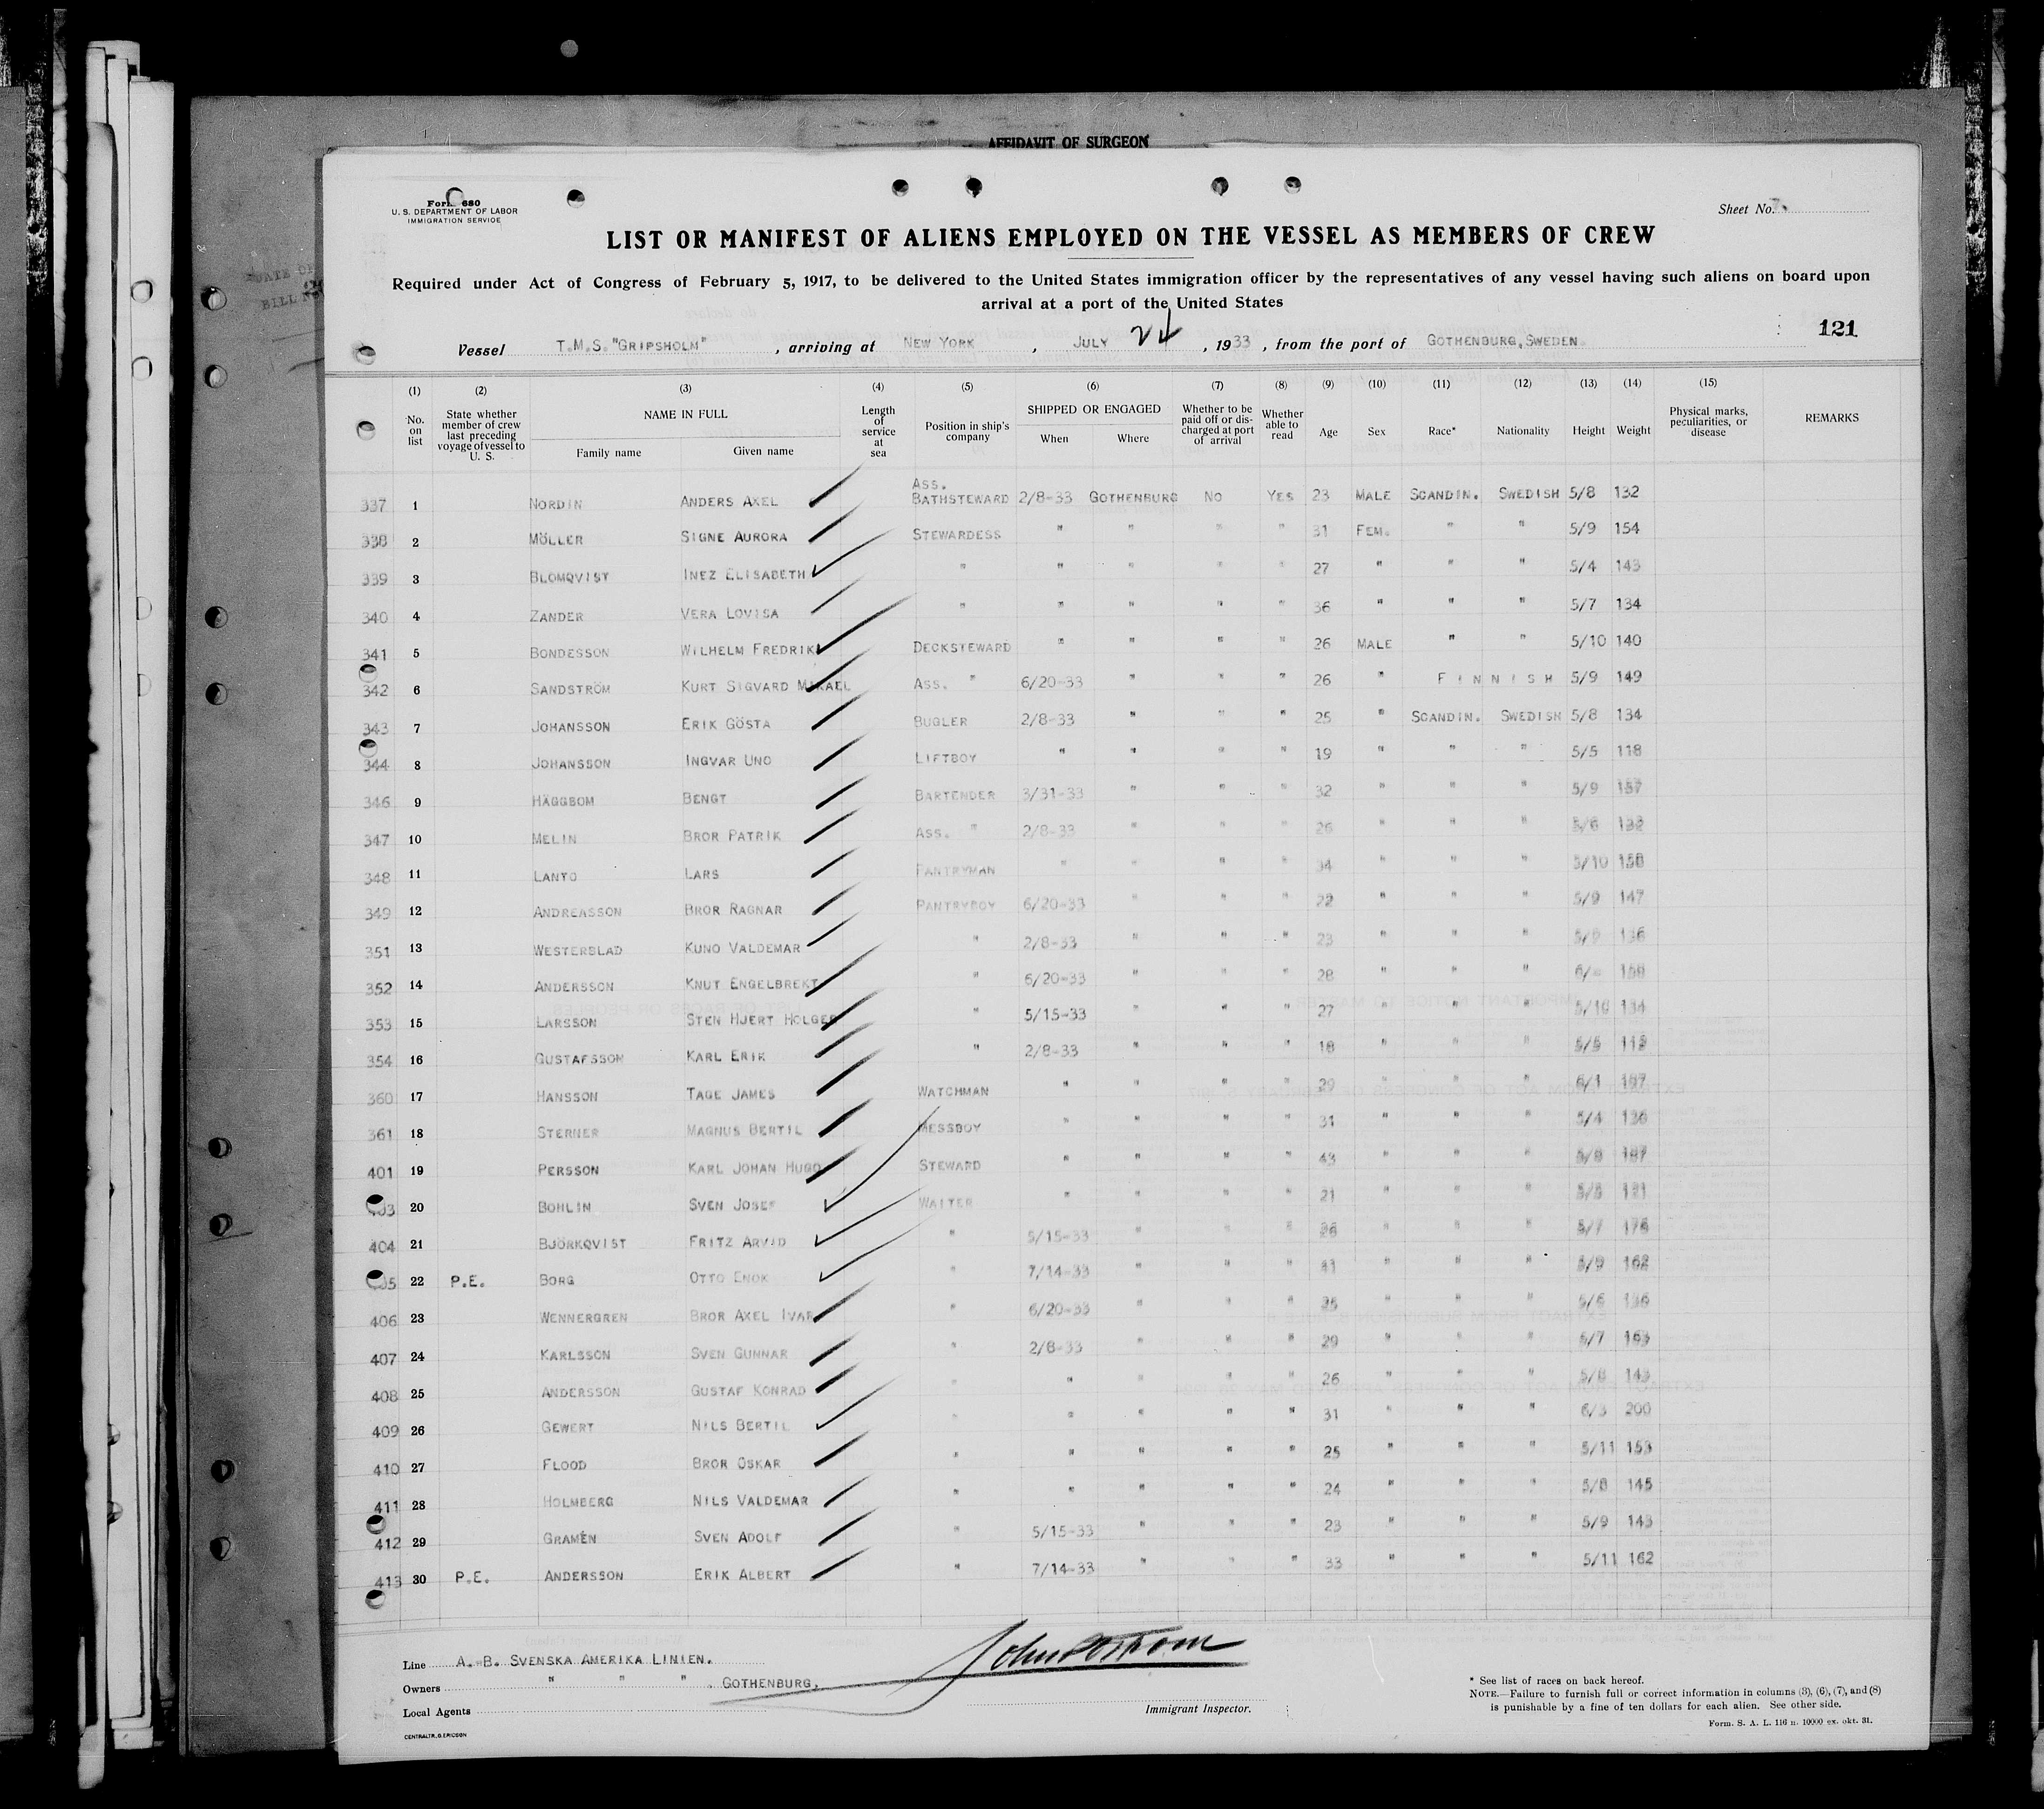 AFFIDAVIT OF SURGEON
Form 680
U. S. DEPARTMENT OF LABOR
IMMIGRATION SERVICE
Sheet No.
LIST OR MANIFEST OF ALIENS EMPLOYED ON THE VESSEL AS MEMBERS OF CREW
Required under Act of Congress of February 5, 1917, to be delivered to the United States immigration officer by the representatives of any vessel having such aliens on board upon
arrival at a port of the United States
121
Vessel T.M.S. "GRIPSHOLM" , arriving at NEW YORK , JULY 24 , 1933 , from the port of GOTHENBURG, SWEDEN.
(1) (2) (3) (4) (5) (6) (7) (8) (9) (10) (11) (12) (13) (14) (15)
No. on list State whether member of crew last preceding voyage of vessel to U. S. NAME IN FULL Family name Given name Length of service at sea Position in ship's company SHIPPED OR ENGAGED When Where Whether to be paid off or discharged at port of arrival Whether able to read Age Sex Race* Nationality Height Weight Physical marks, peculiarities, or disease REMARKS
337 1 NORDIN ANDERS AXEL ASS. BATHSTEWARD 2/8-33 GOTHENBURG NO YES 23 MALE SCANDIN. SWEDISH 5/8 132
338 2 MÖLLER SIGNE AURORA STEWARDESS " " " " 31 FEM. " " 5/9 154
339 3 BLOMQVIST INEZ ELISABETH " " " " " 27 " " " 5/4 143
340 4 ZANDER VERA LOVISA " " " " " 36 " " " 5/7 134
341 5 BONDESSON WILHELM FREDRIK DECKSTEWARD " " " " 26 MALE " " 5/10 140
342 6 SANDSTRÖM KURT SIGVARD MIKAEL ASS. " 6/20-33 " " " 26 " FINNISH 5/9 149
343 7 JOHANSSON ERIK GÖSTA BUGLER 2/8-33 " " " 25 " SCANDIN. SWEDISH 5/8 134
344 8 JOHANSSON INGVAR UNO LIFTBOY " " " " 19 " " " 5/5 118
346 9 HÄGGBOM BENGT BARTENDER 3/31-33 " " " 32 " " " 5/9 157
347 10 MELIN BROR PATRIK ASS. " 2/8-33 " " " 26 " " " 5/6 132
348 11 LANTO LARS PANTRYMAN " " " " 34 " " " 5/10 158
349 12 ANDREASSON BROR RAGNAR PANTRYBOY 6/20-33 " " " 22 " " " 5/9 147
351 13 WESTERBLAD KUNO VALDEMAR " 2/8-33 " " " 23 " " " 5/9 136
352 14 ANDERSSON KNUT ENGELBREKT " 6/20-33 " " " 28 " " " 6/- 158
353 15 LARSSON STEN HJERT HOLGER " 5/15-33 " " " 27 " " " 5/10 134
354 16 GUSTAFSSON KARL ERIK " 2/8-33 " " " 18 " " " 5/5
360 17 HANSSON TAGE JAMES WATCHMAN " " " " 29 " " " 6/1
361 18 STERNER MAGNUS BERTIL MESSBOY " " " " 31 " " " 5/4 136
401 19 PERSSON KARL JOHAN HUGO STEWARD " " " " 43 " " "
20 BOHLIN SVEN JOSEF WAITER " " " " 21 " " " 121
404 21 BJÖRKQVIST FRITZ ARVID " 5/15-33 " " " " " " 5/7 176
22 P.E. BORG OTTO ENOK " 7/14-33 " " " " " " 5/9 162
406 23 WENNERGREN BROR AXEL IVAR " 6/20-33 " " " " " " 5/6 136
407 24 KARLSSON SVEN GUNNAR " 2/8-33 " " " 29 " " " 5/7 163
408 25 ANDERSSON GUSTAF KONRAD " " " " " 26 " " " 5/8 143
409 26 GEWERT NILS BERTIL " " " " " 31 " " " 6/3 200
410 27 FLOOD BROR OSKAR " " " " " 25 " " " 5/11 153
411 28 HOLMBERG NILS VALDEMAR " " " " " 24 " " " 5/8 145
412 29 GRAMÉN SVEN ADOLF " 5/15-33 " " " 23 " " " 5/9 143
413 30 P.E. ANDERSSON ERIK ALBERT " 7/14-33 " " " 33 " " " 5/11 162
Line A.-B. SVENSKA AMERIKA LINIEN.
Owners " " " . GOTHENBURG,
Local Agents
Immigrant Inspector.
* See list of races on back hereof.
NOTE.—Failure to furnish full or correct information in columns (3), (6), (7), and (8)
is punishable by a fine of ten dollars for each alien. See other side.
Form. S. A. L. 116 n. 10000 ex. okt. 31.
CENTRALTR, G. ERICSON